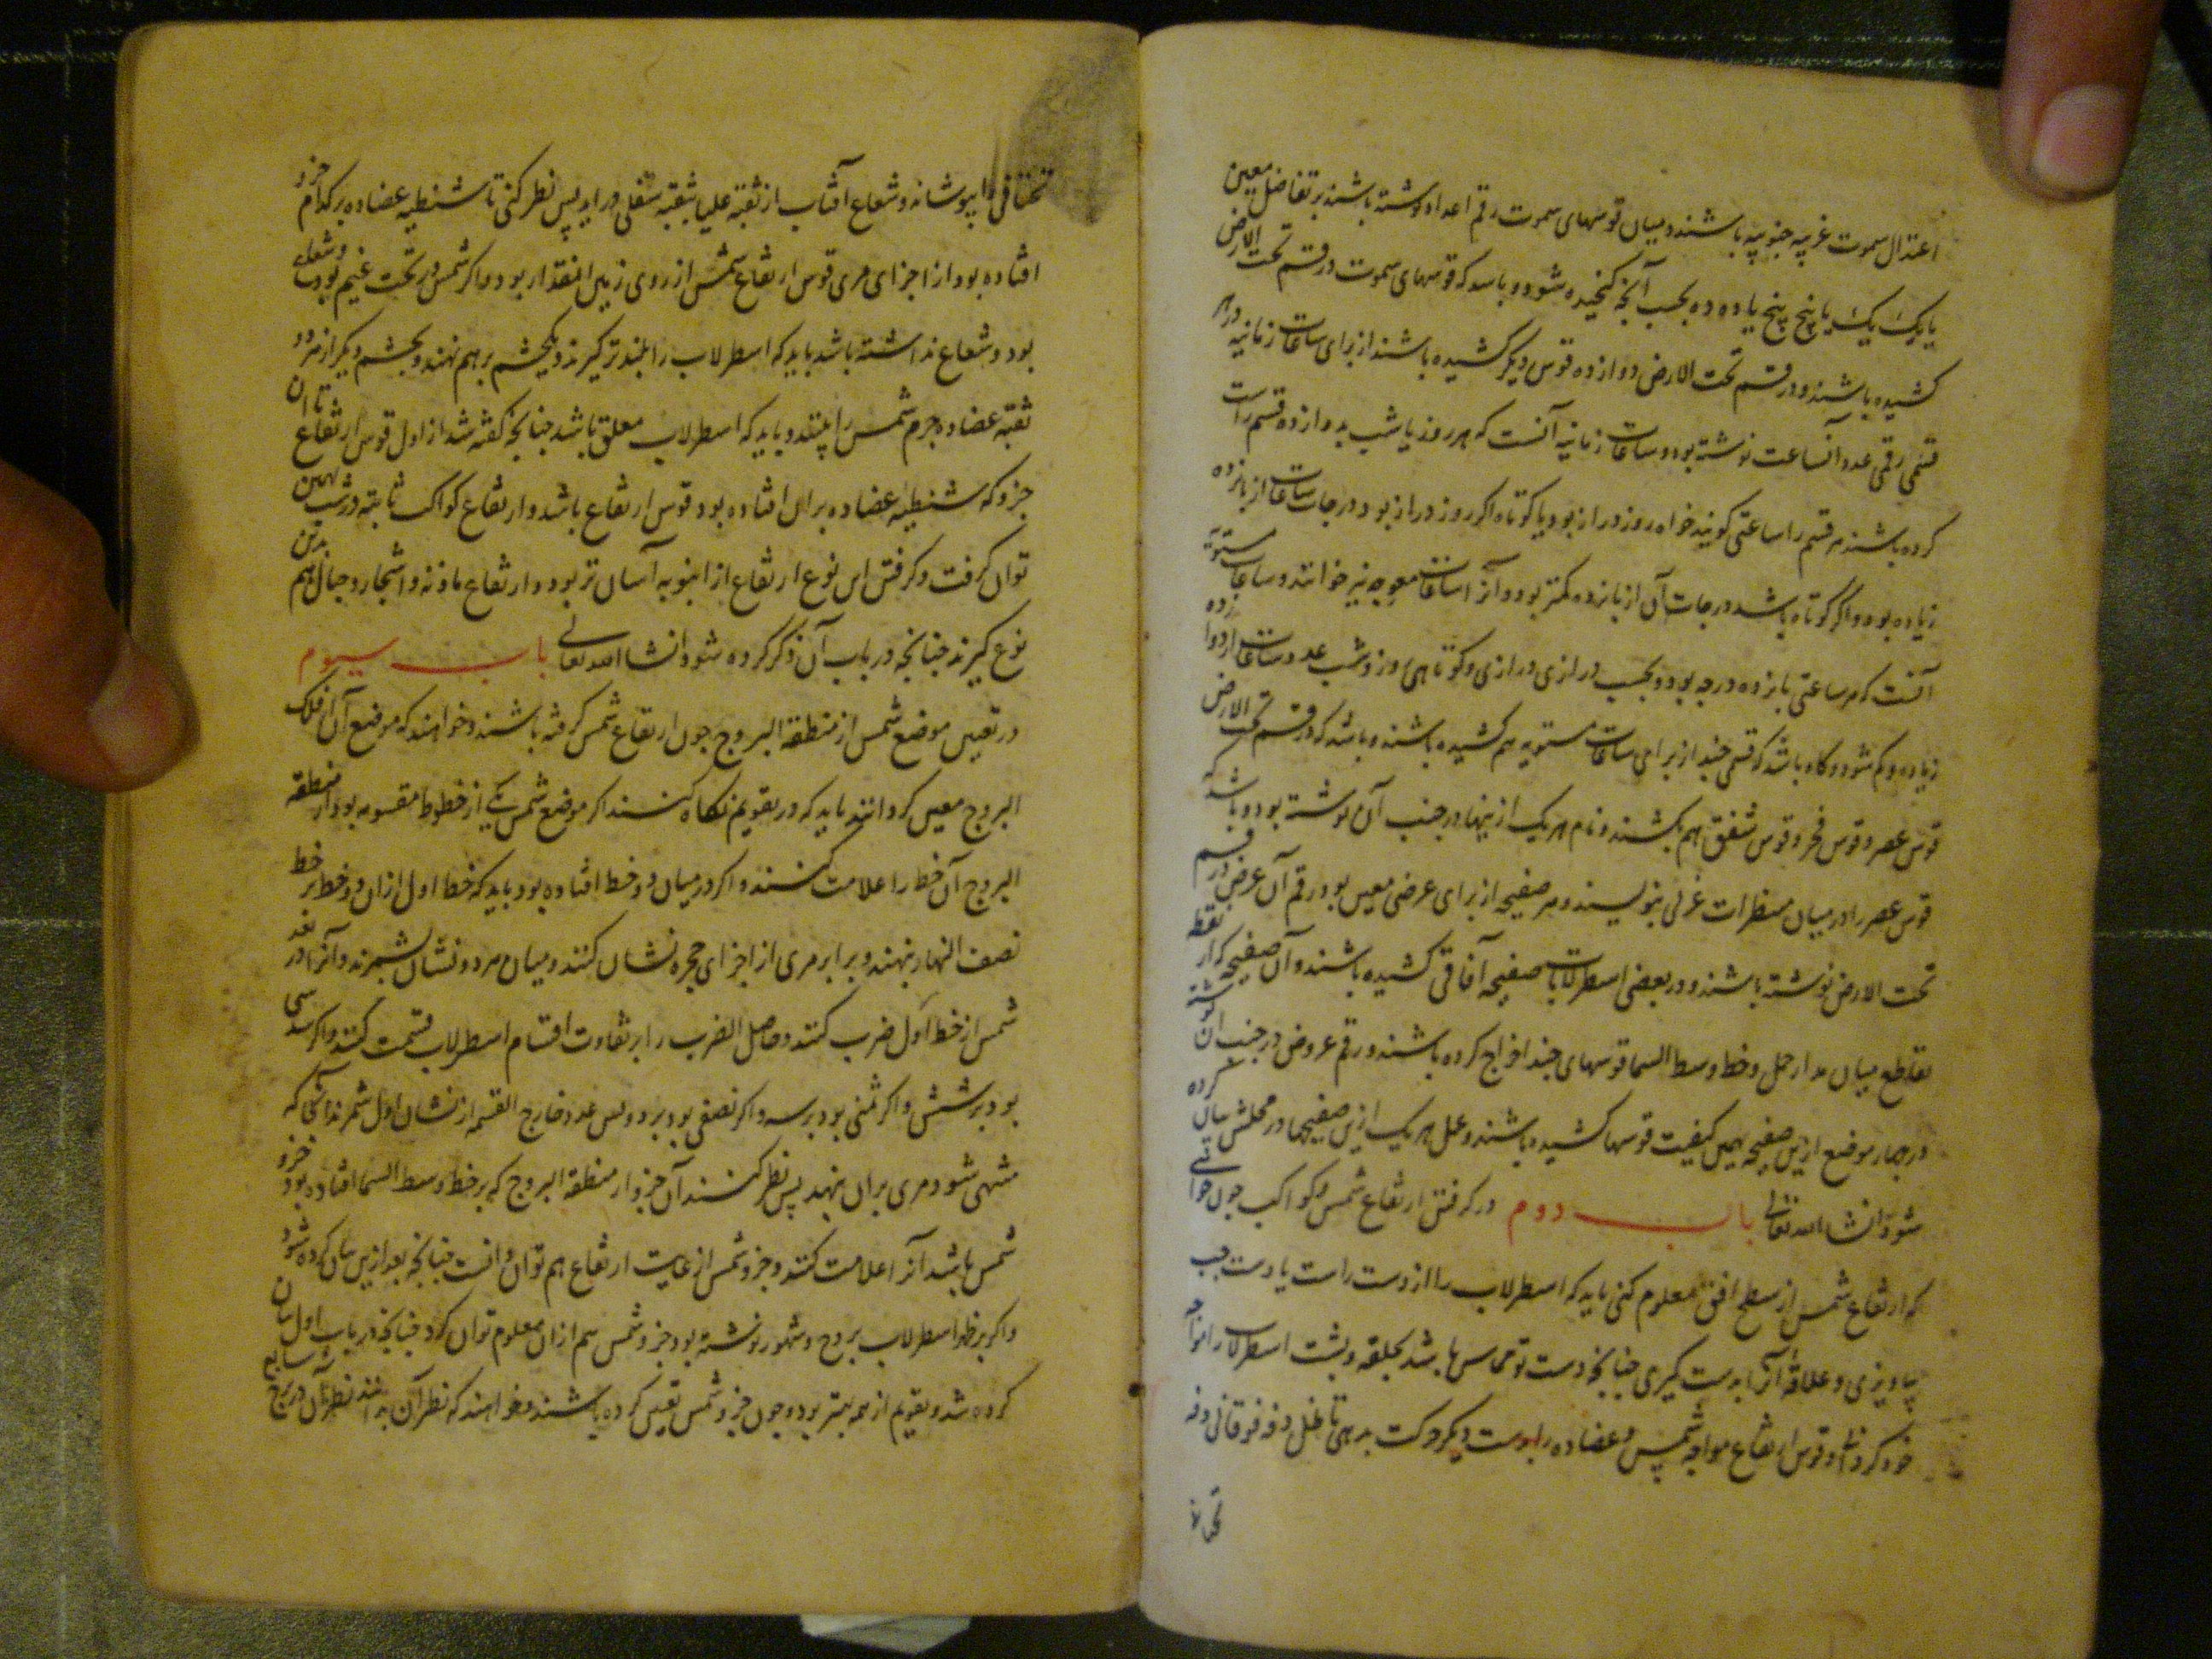 اعتدال سموت غربیه جنوبیه باشند و میان قوسهای سموت رقم اعداد نوشته باشند بر تفاضل معین
یا یک یک یا پنج پنج یا ده ده بحسب آنچه کنجیده شود و باشد که قوسهای سموت در قسم تحت الارض
کشیده باشند و در قسم تحت الارض دوازده قوس دیگر کشیده باشند از برای ساعات زمانیه و در هر
قسمی رقمی عدد آنساعت نوشته بود و ساعات زمانیه آنست که هر روز یا شب بدوازده قسم راست
کرده باشند هر قسم را ساعتی کویند خواه روز دراز بود یا کوتاه اکر روز دراز بود درجات ساعات از پانزده
زیاده بود و اکر کوتاه باشد درجات آن از پانزده کمتر بود و آنرا ساعات معوجه نیز خوانند و ساعات مستویه
آنست که هر ساعتی پانزده درجه بود و بحسب درازی و کوتاهی روز و شب عدد ساعات از دوازده
زیاده و کم شود و کاه باشد که قسمی چند از برای ساعات مستویه هم کشیده باشند و باشد که در قسم تحت الارض
قوس عصر و قوس فجر و قوس شفق هم بکشند و نام هر یک ازینها در جنب آن نوشته بود و باشد که
قوس عصر را در میان مقنطرات غربی بنویسند و هر صفیحه از برای عرضی معین بود رقم آن عرض در قسم
تحت الارض نوشته باشند و در بعضی اسطرلابات صفیحه آفاقی کشیده باشند و آن صفیحه که از نقطه
تقاطع میان مدار حمل و خط وسط السما قوسهای چند اخراج کرده باشند و رقم عروض در جنب آن نوشته
در چهار موضع ازین صفیحه بهمین کیفیت قوسها کشیده باشند و عمل هر یک ازین صفیحها در محلش بیان کرده
شود انشا الله تعالی باب دوم در کرفتن ارتفاع شمس و کواکب چون خواهی
که ارتفاع شمس از سطح افق معلوم کنی باید که اسطرلاب را از دست راست یا دست چپ
بیاویزی و علاقهٔ آنرا بدست کیری چنانچه دست تو مماس باشد بحلقه و پشت اسطرلاب را مواجه
خود کردانی و قوس ارتفاع مواجه شمس پس عضاده را بدست دیکر حرکت بدهی تا ظل دفه فوقانی دفه
تحتانی
تحتانی را بپوشاند و شعاع آفتاب از ثقبه علیا بثقبه سفلی در اید پس نظر کنی تا شظیه عضاده بر کدام جزو
افتاده بود از اجزای مری قوس ارتفاع شمس از روی زمین انمقدار بود و اکر شمس در تحت غیم بود و شعاع
بود و شعاع نداشته باشد باید که اسطرلاب را بلندتر کیرند و یکچشم بر هم نهند و بچشم دیکر از هر دو
ثقبه عضاده جرم شمس را ببینند و باید که اسطرلاب معلق باشد چنانچه کفته شد از اول قوس ارتفاع تا ان
جزو که شظیه عضاده بران افتاده بود قوس ارتفاع باشد و ارتفاع کواکب ثابته در شب بهمین
توان کرفت و کرفتن این نوع ارتفاع از انبوبه آسان تر بود و ارتفاع ماذنه و اشجار و جبال هم بدین
نوع کیرند چنانچه در باب آن ذکر کرده شود انشا الله تعالی باب سیوم
در تعیین موضع شمس از منطقة البروج چون ارتفاع شمس کرفته باشند و خواهند که موضع آن از فلک
البروج معین کردانند باید که در تقویم نکاه کنند اکر موضع شمس یکی از خطوط مقسومه بود از منطقة
البروج آن خط را علامت کنند و اکر در میان دو خط افتاده بود باید که خط اول ازان دو خط بر خط
نصف النهار بنهند و برابر مری از اجزای حجره نشان کنند و میان هر دو نشان بشمرند و آنرا در بعد
شمس از خط اول ضرب کنند و حاصل الضرب را بر تفاوت اقسام اسطرلاب قسمت کنند و اکر سدسی
بود بر شش و اکر ثلثی بود بر سه و اکر نصفی بود بر دو پس عدد خارج القسمه از نشان اول شمرند آنجا که
منتهی شود مری بران نهند پس نظر کنند آن جزو از منطقة البروج که بر خط وسط السما افتاده بود جزو
شمس باشد آنرا علامت کنند و جزو شمس از غایت ارتفاع هم توان دانست چنانچه بعد ازین بیان کرده شود
و اکر بر ظهر اسطرلاب بروج و شهور نوشته بود جزو شمس هم ازان معلوم توان کرد چنانچه در باب اول بیان
کرده شد و تقویم از همه بهتر بود و چون جزو شمس تعیین کرده باشند و خواهند که نظیر آن بدانند نظیر آن در برج